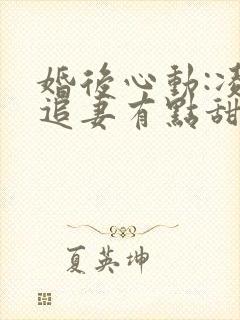 婚後心動:凌
追妻有點甜
夏英坤